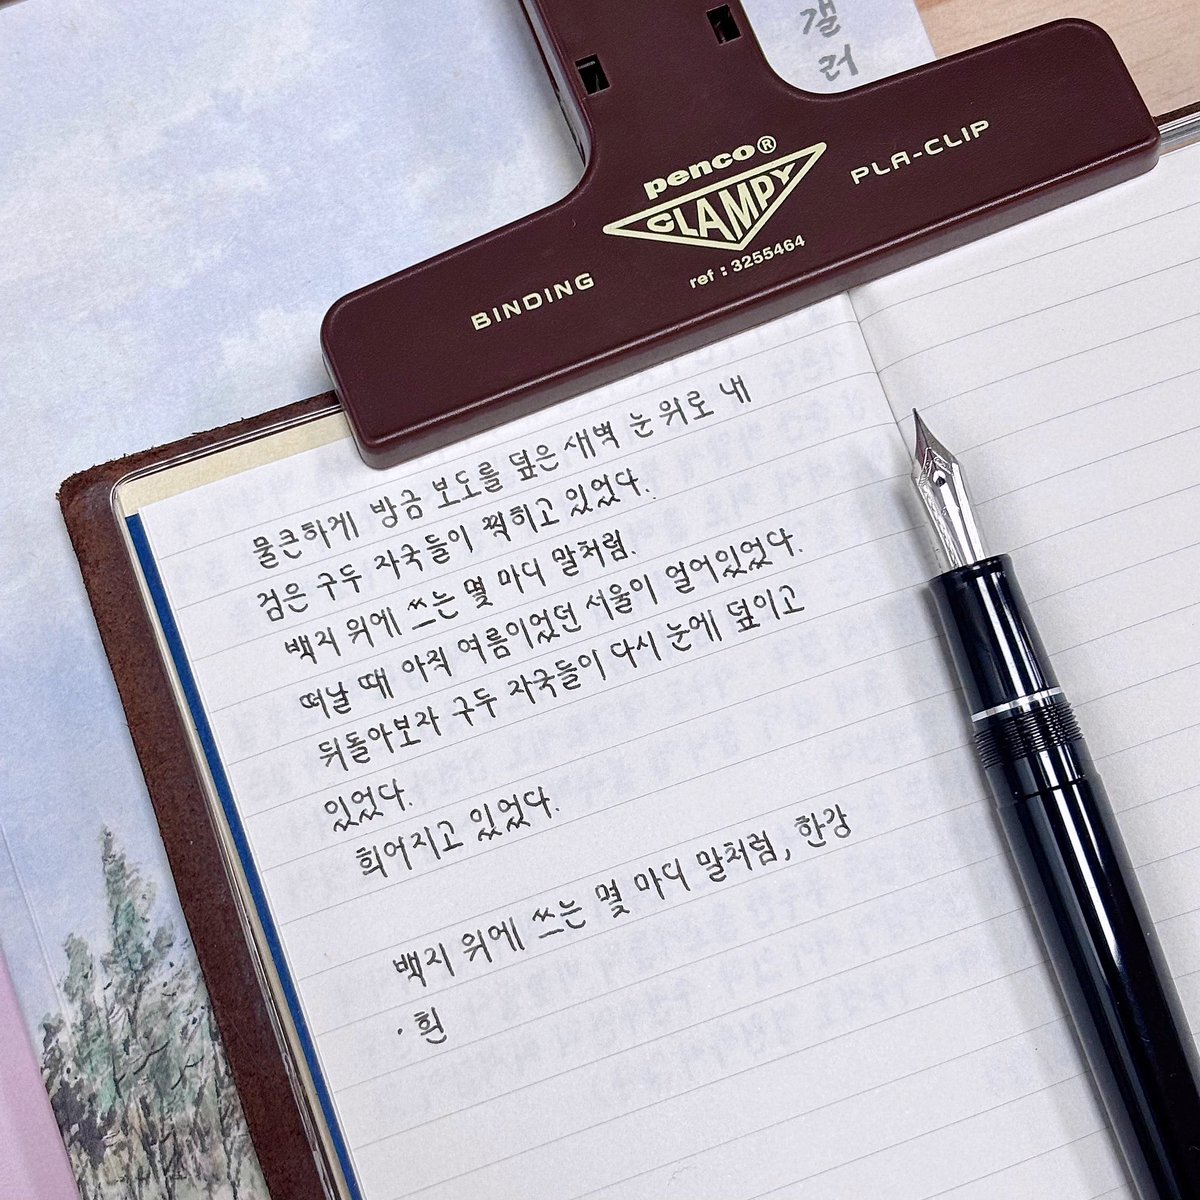 갤
러
penco®
CLAMPY
BINDING
PLA-CLIP
ref : 3255464
물큰하게 방금 보도를 덮은 새벽 눈 위로 내
검은 구두 자국들이 찍히고 있었다.
백지 위에 쓰는 몇 마디 말처럼.
떠날 때 아직 여름이었던 서울이 얼어있었다.
뒤돌아보자 구두 자국들이 다시 눈에 덮이고
있었다.
희어지고 있었다.
백지 위에 쓰는 몇 마디 말처럼, 한강
· 흰